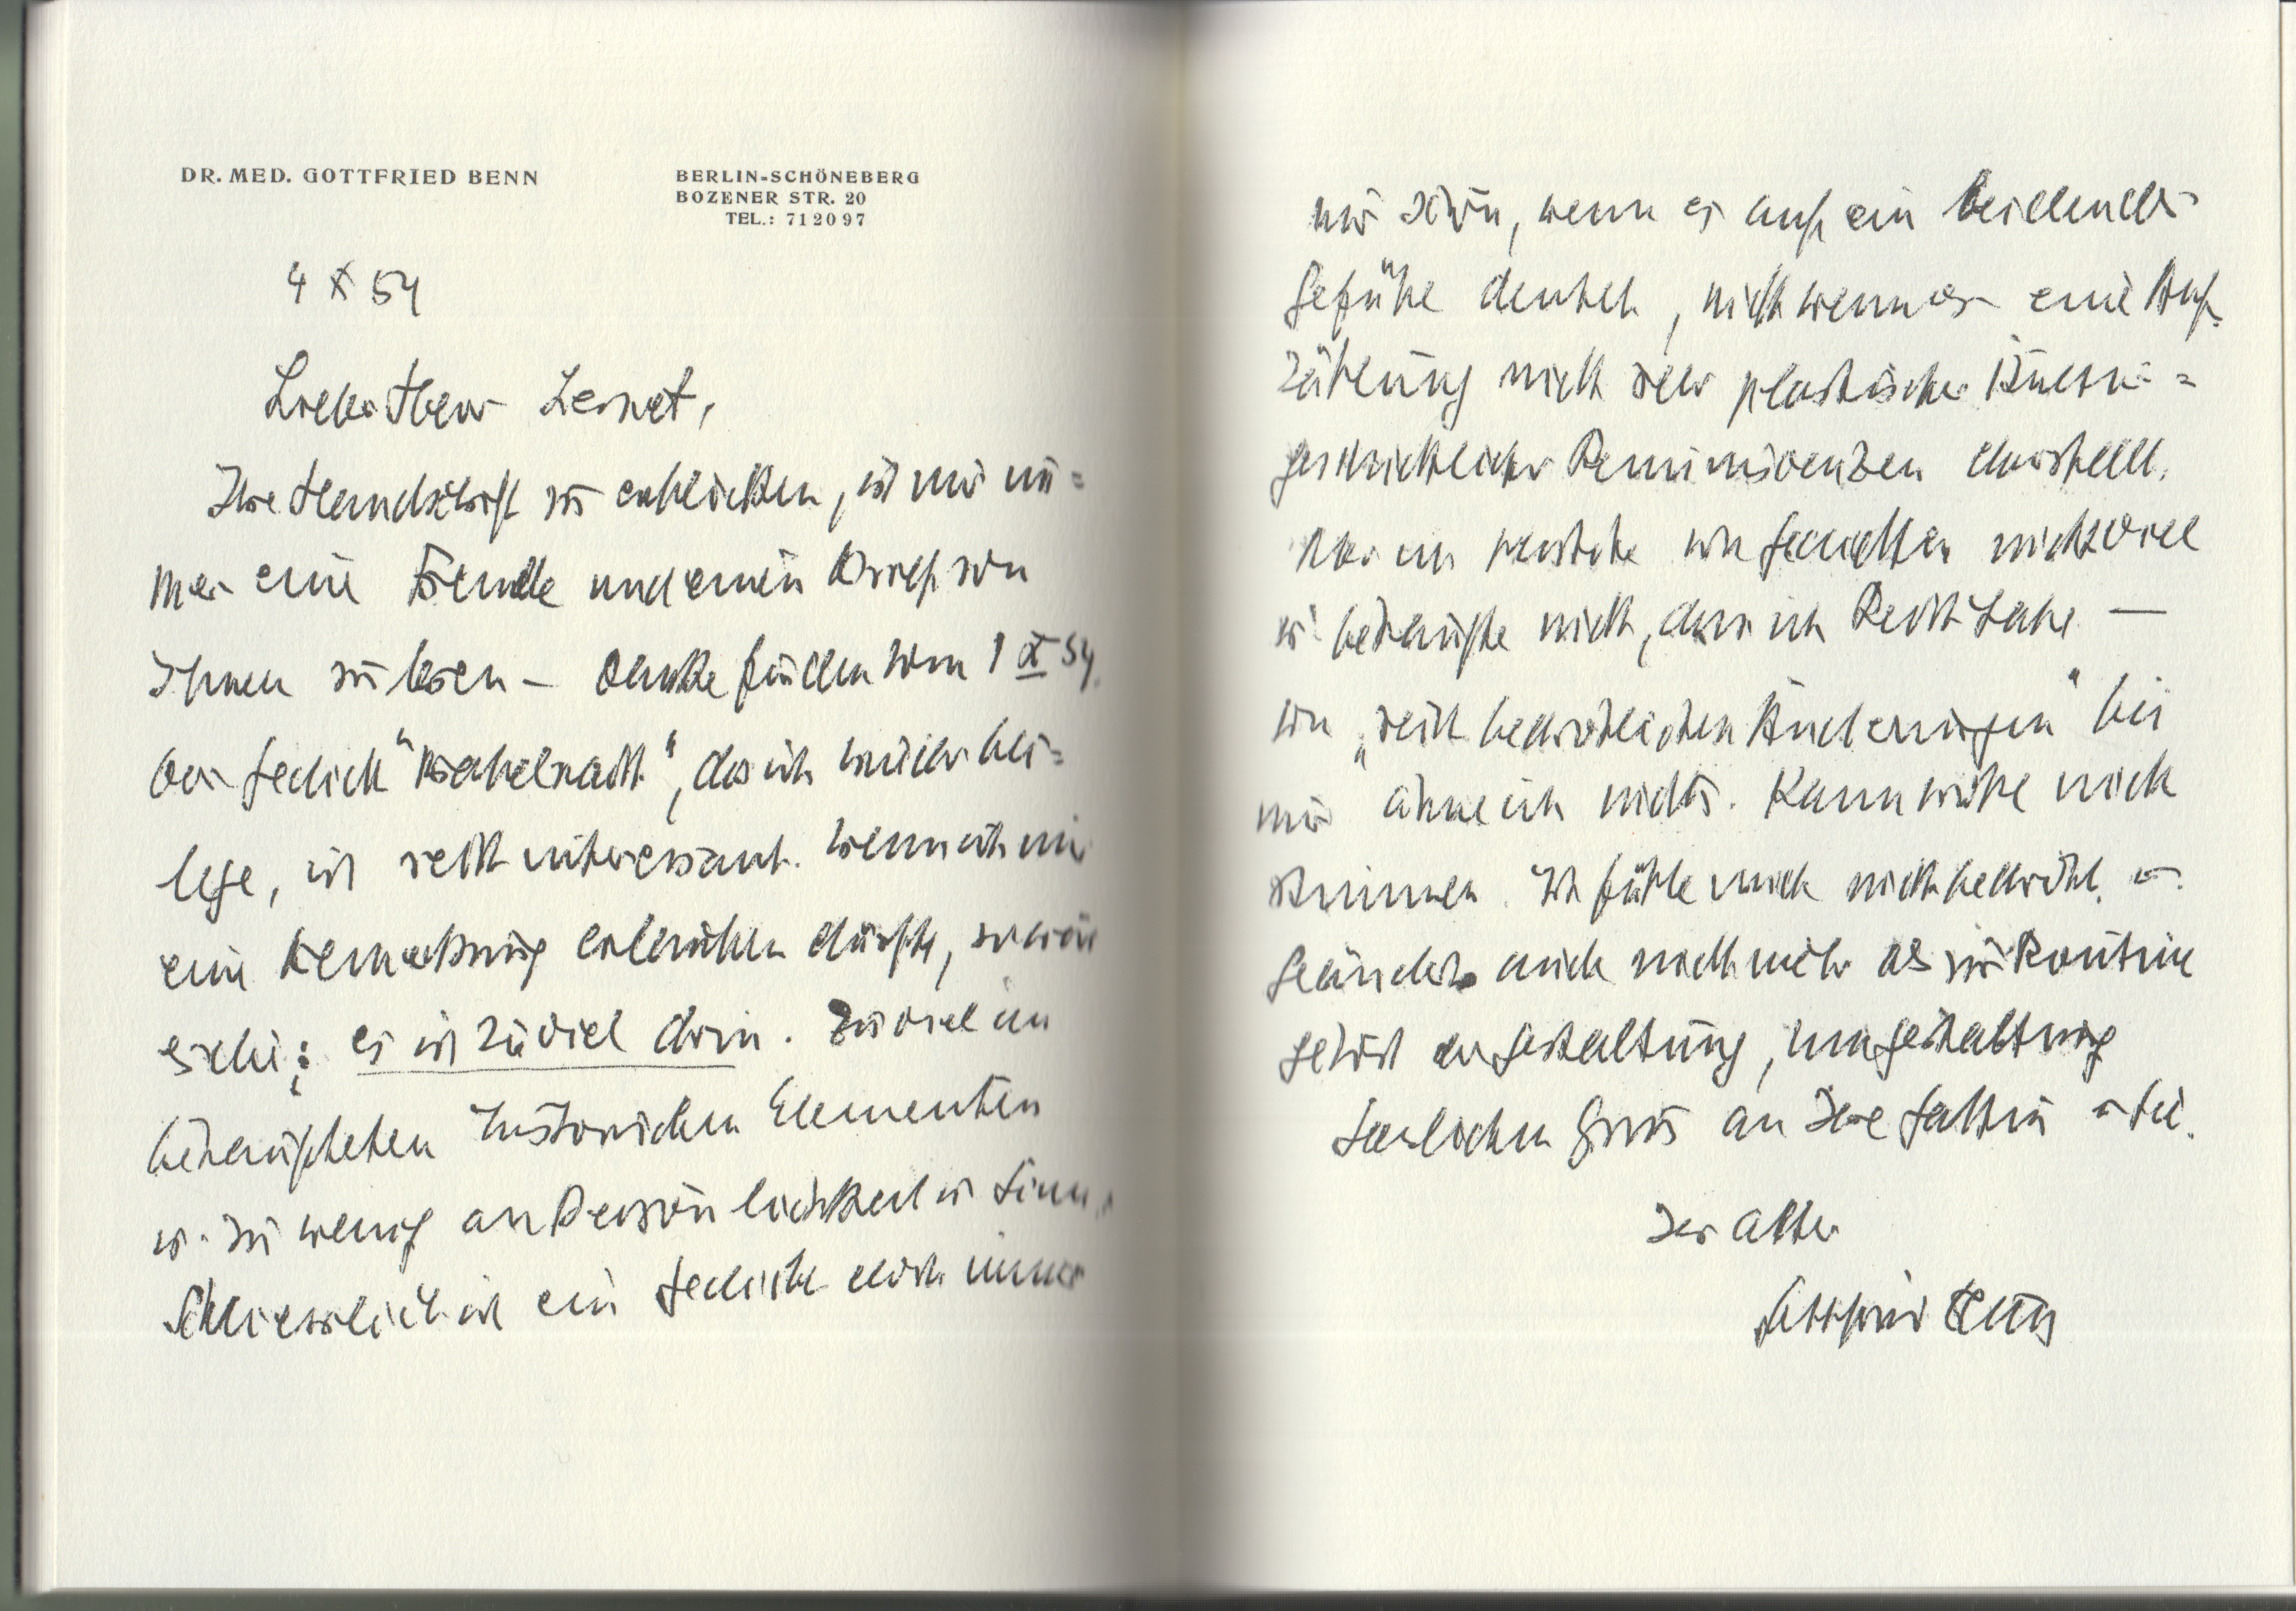 DR. MED. GOTTFRIED BENN
BERLIN-SCHÖNEBERG
BOZENER STR. 20
TEL.: 71 20 97
4 X 54
Lieber Herr Lernet,
Ihre Handschrift zu erblicken, ist mir im=
mer eine Freude und einen Brief von
Ihnen zu lesen – Danke für den vom 1 X 54.
Das Gedicht "Nebelnacht", das ich wieder bei=
lege, ist recht interessant. Wenn ich mir
eine Bemerkung erlauben dürfte, so wäre
es die: es ist zuviel drin. Zuviel an
behaupteten historischen Elementen
u. zu wenig an Persönlichkeit u Sinn.
Schliesslich ist ein Gedicht doch immer
nur schön, wenn es auf ein bleibendes
Gefühl deutet, nicht wenn es eine Auf=
zählung nicht sehr plastischer
geschichtlicher Reminiscenzen darstellt.
Aber ich verstehe von Gedichten nicht viel
u. behaupte nicht, dass ich Recht habe —
Von „recht bedrohlichen Änderungen" bei
mir ahne ich nichts. Kann wohl nicht
stimmen. Ich fühle mich nicht bedroht u.
geändert auch nicht mehr als zur Routine
gehört der Gestaltung, Umgestaltung
Herzlichen Gruss an Ihre Gattin u Sie.
Ihr alter
Gottfried Benn